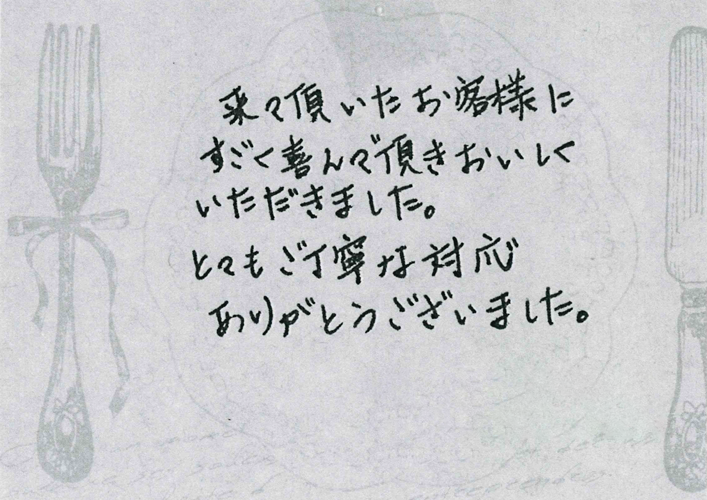 来て頂いたお客様に
すごく喜んで頂きおいしく
いただきました。
とてもご丁寧な対応
ありがとうございました。